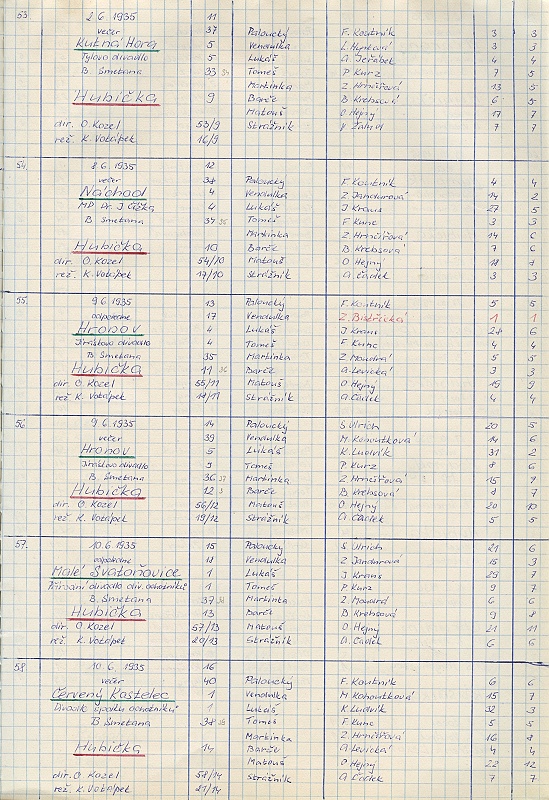 53 2.6.1935 11
večer 37 Paloucký F. Koutník 3 3
Kutná Hora 5 Vendulka 3 3
Tylovo divadlo 5 Lukáš A. Jeřábek 4 4
B Smetana 33 34 Tomeš P Kurz 7 5
Martinka Z Hrnčířová 13 5
Hubička 9 Barče B Krebsová 6 5
Matouš O Hejný 17 7
dir. O. Kozel 53/9 Strážník V Žalud 7 7
rež. K. Votápek 16/9
54. 8.6.1935 12
večer 38 Paloucký F. Koutník 4 4
Náchod 4 Vendulka Z Jandurová 14 2
MD Dr. J Čížka 4 Lukáš J Kraus 27 5
B. Smetana 34 35 Tomeš F Kunc 3 3
Martinka Z Hrnčířová 14 6
Hubička 10 Barče B. Krebsová 7 6
dir. O. Kozel 54/10 Matouš O Hejný 18 7
rež. K. Votápek 17/10 Strážník A. Čadek 3 3
55. 9.6.1935 13 Paloucký F. Koutník 5 5
odpoledne 17 Vendulka Z. Bistřická 1 1
Hronov 4 Lukáš J Kraus 28 6
Jiráskovo divadlo 4 Tomeš F Kunc 4 4
B. Smetana 35 Martinka Z Moudrá 5 5
Hubička 11 36 Barče A. Levická 3 3
dir. O Kozel 55/11 Matouš O Hejný 19 9
rež K. Votápek 18/11 Strážník A. Čadek 4 4
56 9.6.1935 14 Paloucký S Ulrich 20 5
večer 39 Vendulka M. Kohoutková 14 6
Hronov 5 Lukáš K. Ludvík 31 2
Jiráskovo divadlo 9 Tomeš P. Kurz 8 6
B Smetana 36 Martinka Z Hrnčířová 15 7
Hubička 12 Barče B Krebsová 8 7
dir. O. Kozel 56/12 Matouš O Hejný 20 10
rež K. Votápek 19/12 Strážník A Čadek 5 5
57. 10.6.1935 15 Paloucký S Ulrich 21 6
odpoledne 18 Vendulka Z Jandurová 15 3
Malé Svatoňovice 1 Lukáš J Kraus 29 7
Přírodní divadlo div. ochotníků 1 Tomeš P Kurz 9 7
B. Smetana 37 38 Martinka Z Moudrá 6 6
Hubička 13 Barče B Krebsová 9 8
dir. O. Kozel 57/13 Matouš O Hejný 21 11
rež. K. Votápek 20/13 Strážník A. Čadek 6 6
58 10.6.1935 16
večer 40 Paloucký F. Koutník 6 6
Červený Kostelec 1 Vendulka M Kohoutková 15 7
Divadlo spolku ochotníků 1 Lukáš K Ludvík 32 3
B Smetana 38 39 Tomeš F. Kunc 5 5
Martinka Z. Hrnčířová 16 8
Hubička 14 Barče A. Levická 4 4
Matouš O Hejný 22 12
dir. O Kozel 58/14 Strážník A Čadek 7 7
rež. K. Votápek 21/14